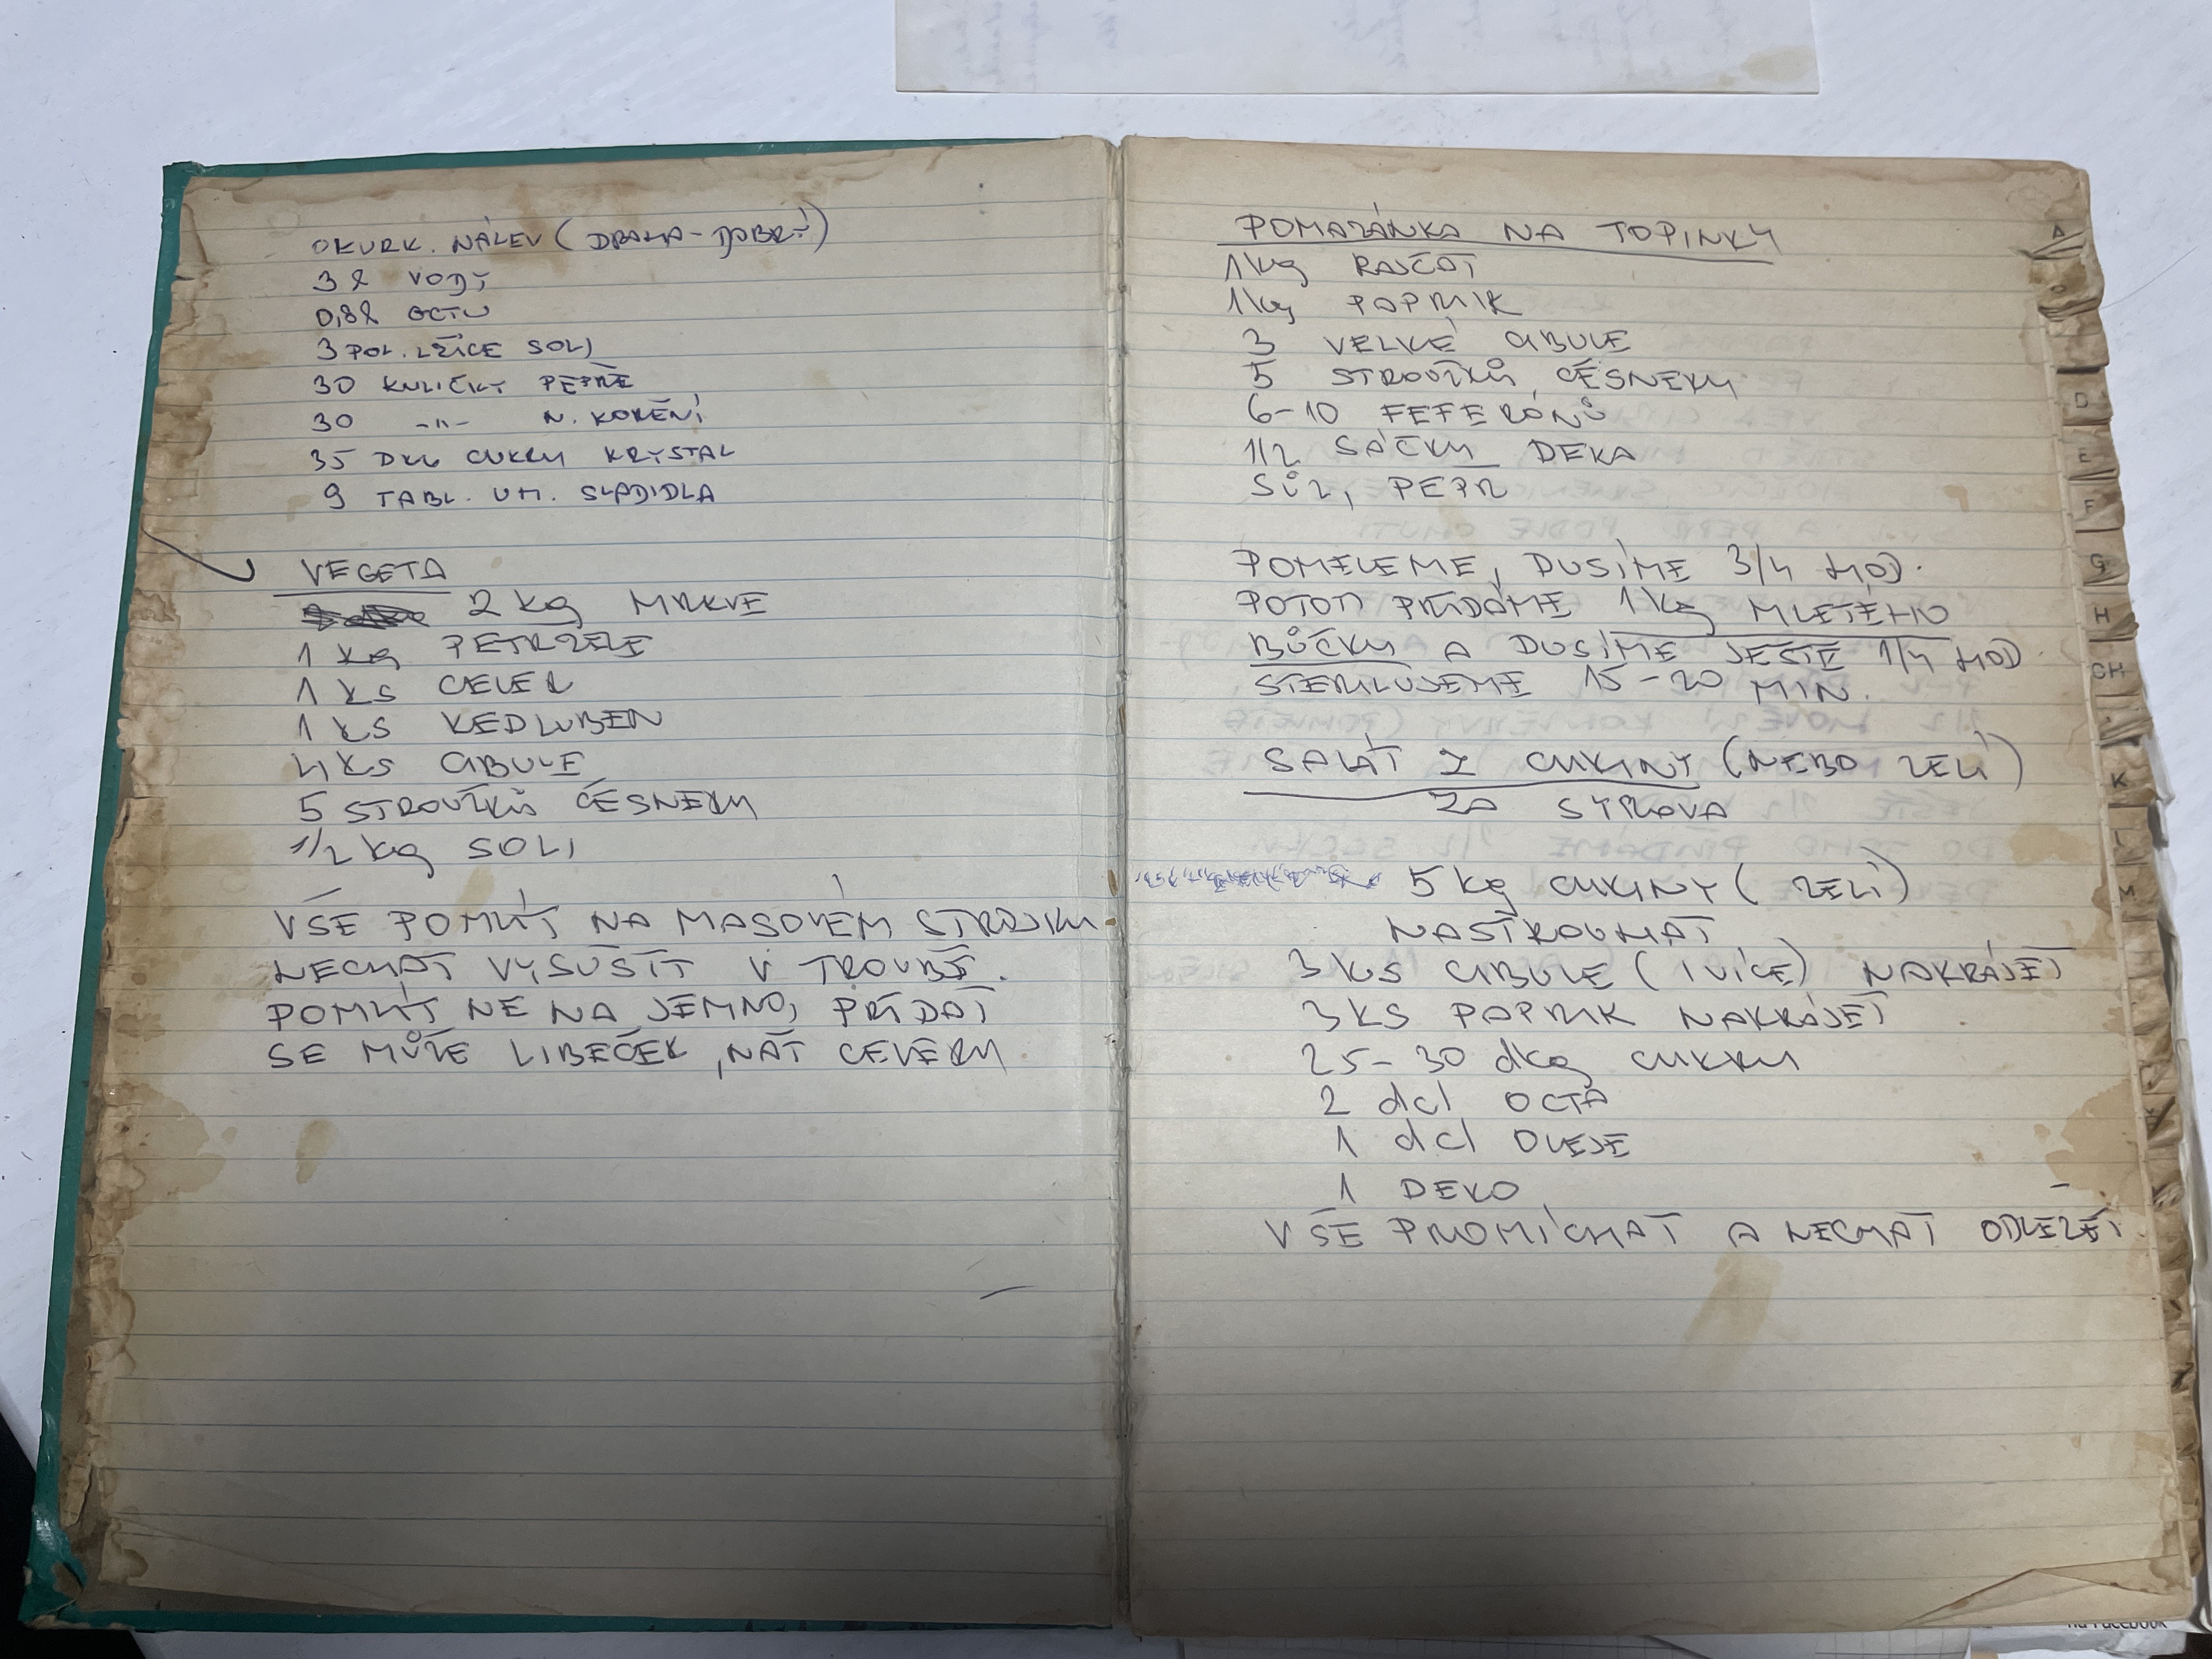 OKURK. NÁLEV (DRAHA-DOBRÝ)
3 l VODY
0,8l OCTU
3 POL. LŽÍCE SOLI
30 KULIČKY PEPŘE
30 -"- N. KOŘENÍ
35 DKG CUKRU KRYSTAL
9 TABL. UM. SLADIDLA
VEGETA
2 kg MRKVE
1 kg PETRŽELE
1 KS CELER
1 KS KEDLUBEN
4 KS CIBULE
5 STROUŽKŮ ČESNEKU
1/2 kg SOLI
VŠE POMLÍT NA MASOVÉM STROJKU
NECHAT VYSUŠIT V TROUBĚ.
POMLÍT NE NA JEMNO, PŘIDAT
SE MŮŽE LIBEČEK, NAŤ CELERU
POMAZÁNKA NA TOPINKY
1 kg RAJČAT
1 kg PAPRIK
3 VELKÉ CIBULE
5 STROUŽKŮ ČESNEKU
6-10 FEFERÓNŮ
1/2 SÁČKU DEKA
SŮL, PEPŘ
POMELEME, DUSÍME 3/4 HOD.
POTOM PŘIDÁME 1 kg MLETÉHO
BŮČKU A DUSÍME JEŠTĚ 1/4 HOD
STERILUJEME 15-20 MIN.
SALÁT Z CUKINY (NEBO ZELÍ)
ZA SYROVA
5 kg CUKINY (ZELÍ)
NASTROUHAT
3 KS CIBULE (I VÍCE) NAKRÁJET
3 KS PAPRIK NAKRÁJET
25-30 dkg CUKRU
2 dcl OCTA
1 dcl OLEJE
1 DEKO
VŠE PROMÍCHAT A NECHAT ODLEŽET.
A
D
E
F
G
H
CH
K
L
M
na Facebook